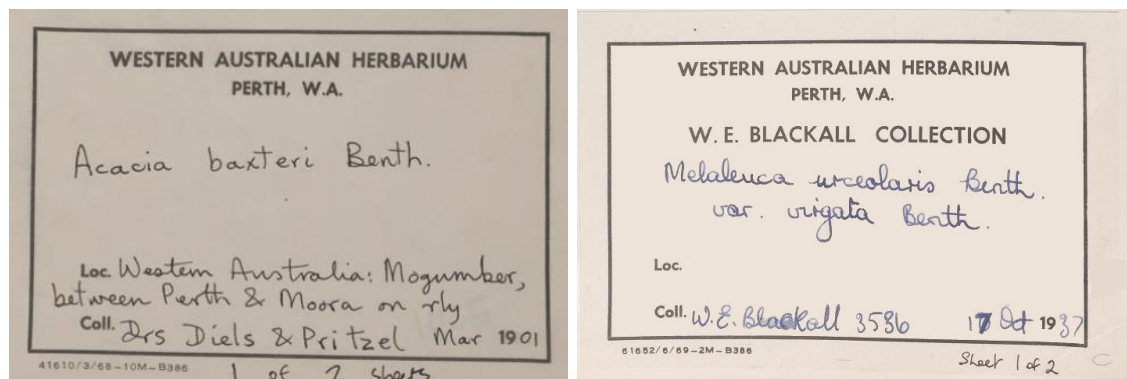 WESTERN AUSTRALIAN HERBARIUM
PERTH, W.A.
Acacia baxteri Benth.
Loc. Western Australia: Mogumber,
between Perth & Moora on rly
Coll. Drs Diels & Pritzel Mar 1901
41610/3/68-10M-B386
1 of 2 sheets
WESTERN AUSTRALIAN HERBARIUM
PERTH, W.A.
W. E. BLACKALL COLLECTION
Melaleuca urceolaris Benth.
var. virgata Benth.
Loc.
Coll. W.E. Blackall 3536 17 Oct 1937
61652/6/69-2M-B386
Sheet 1 of 2